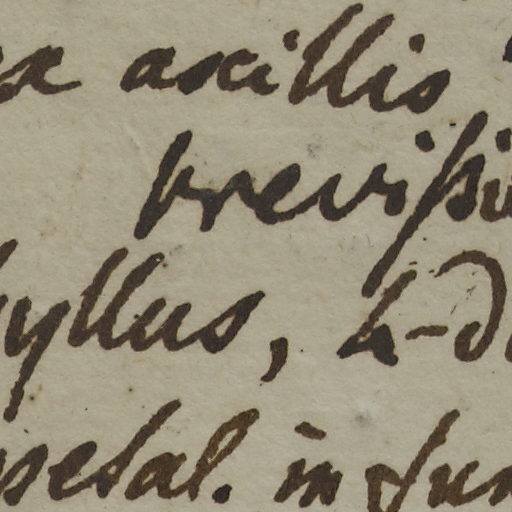 ex axillis
brevissi
hyllus, 2-d
petal. in fun